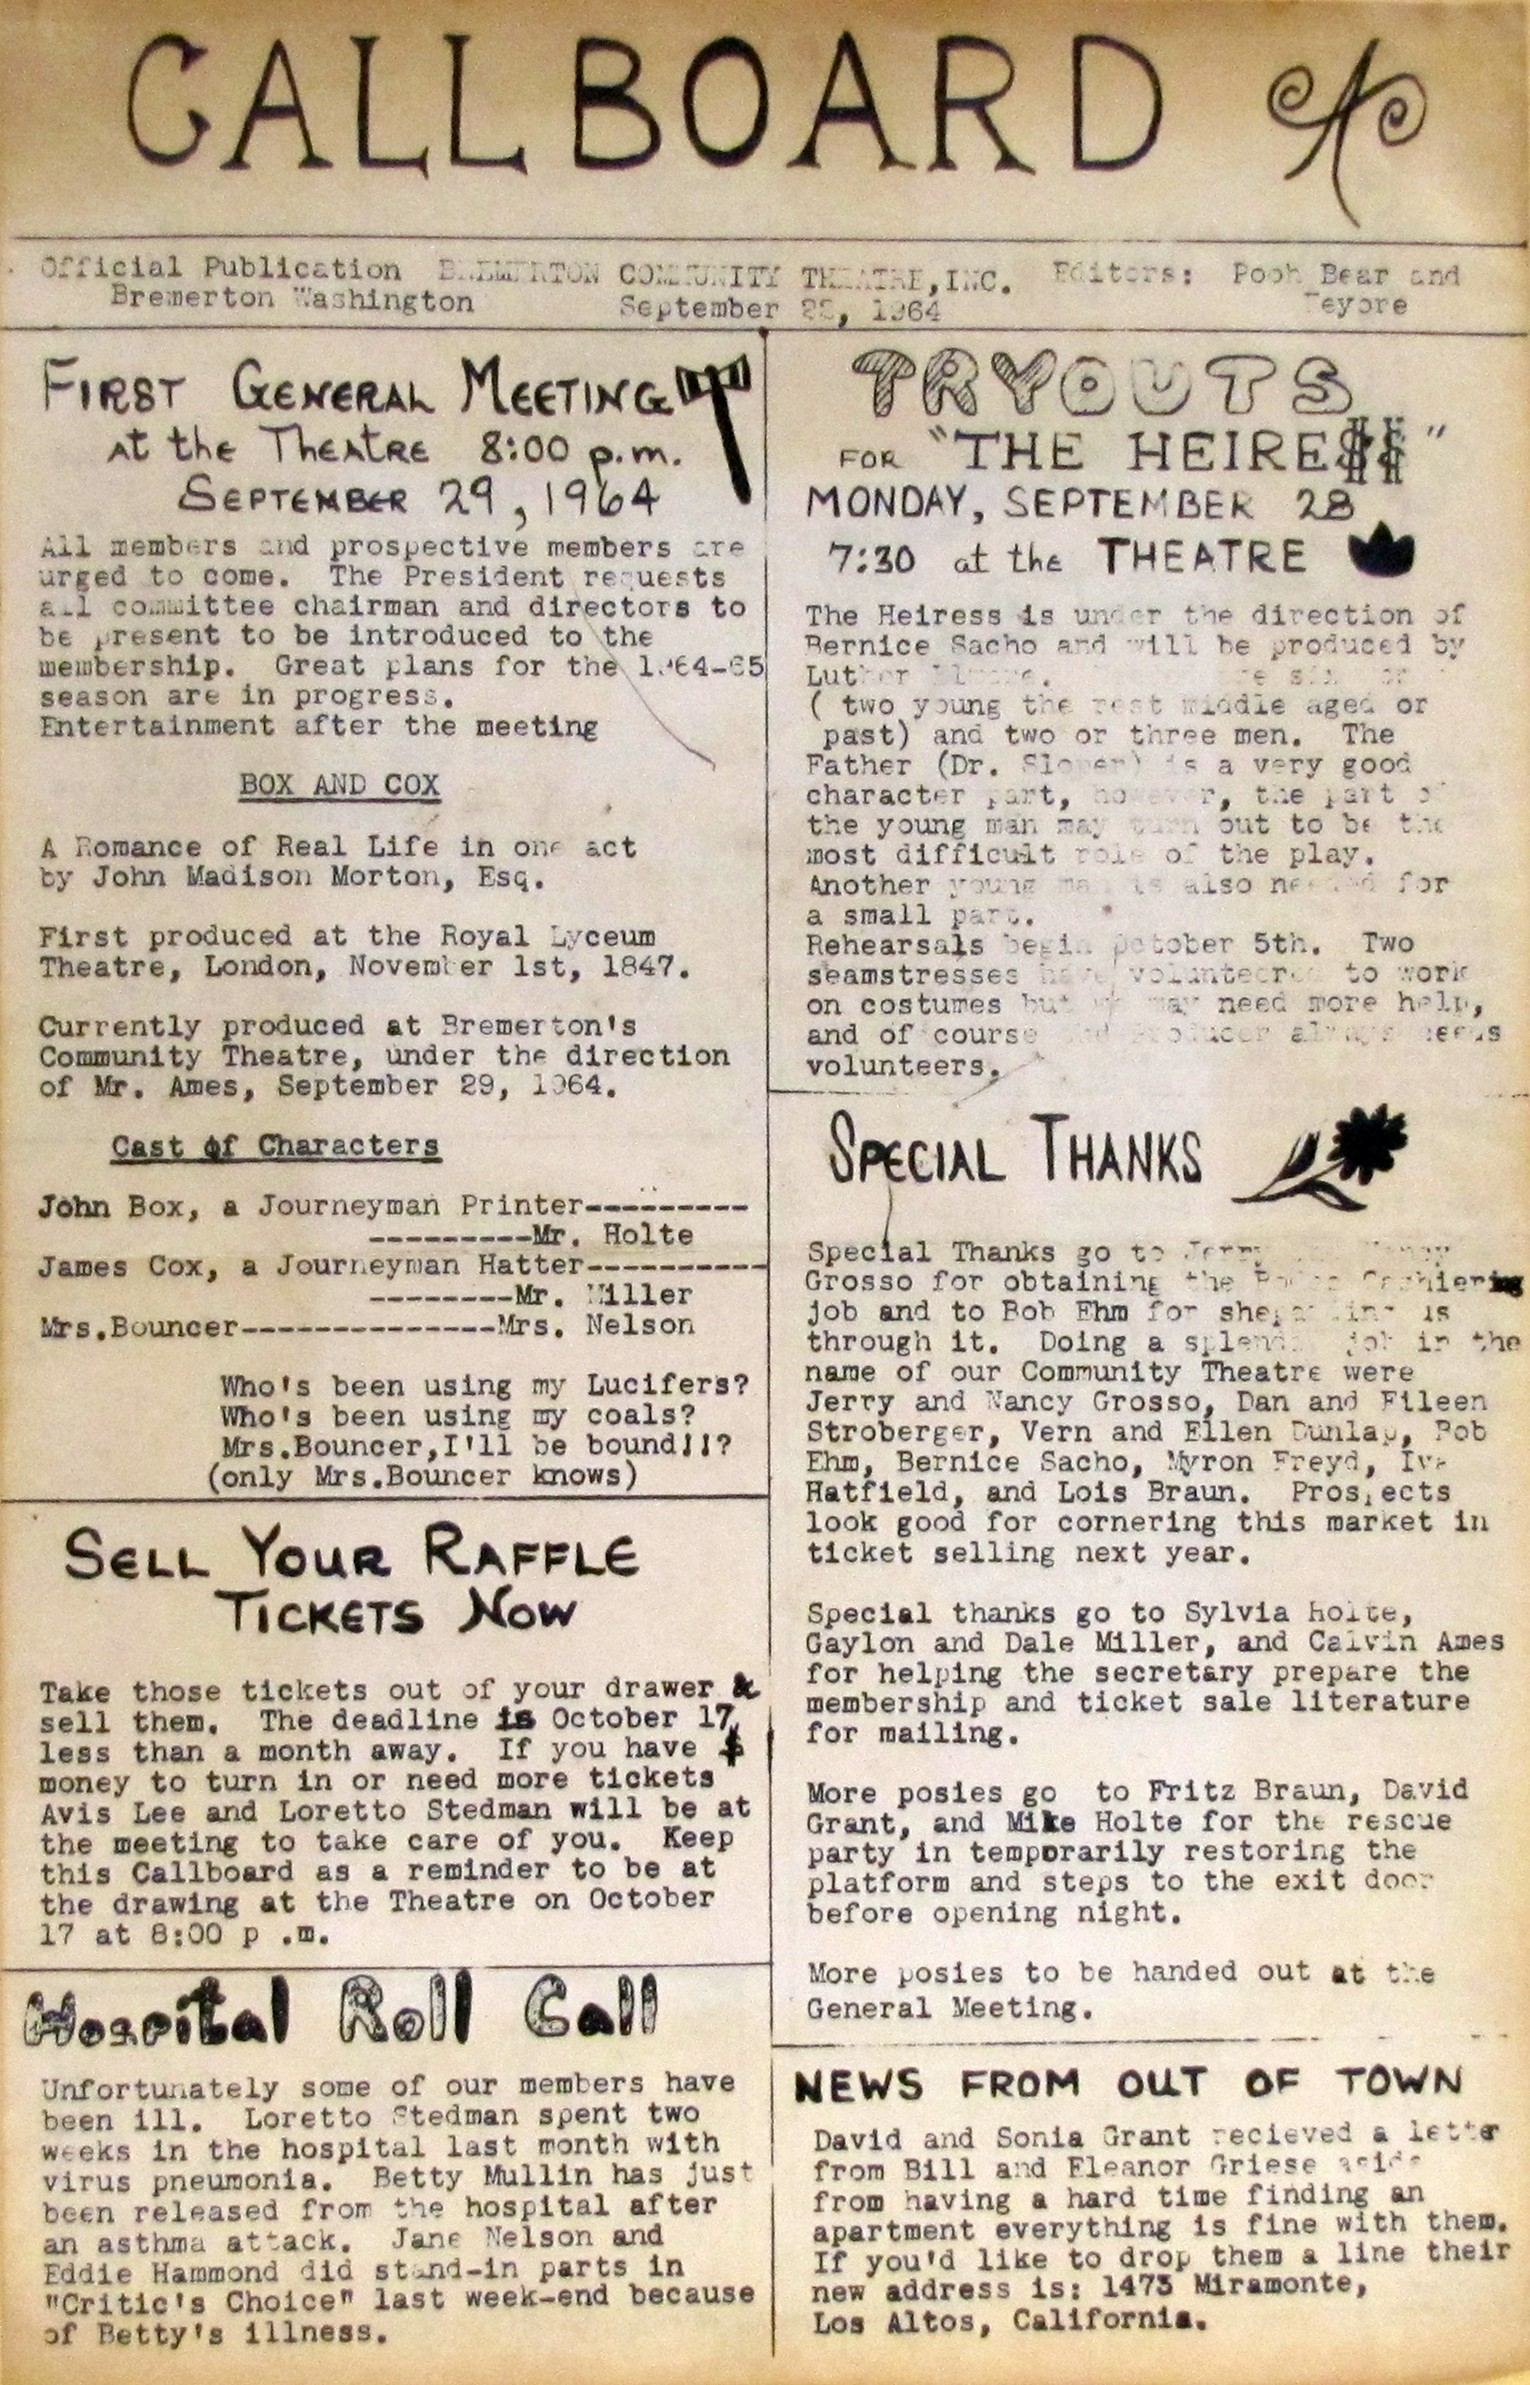 CALL BOARD
Official Publication BREMERTON COMMUNITY THEATRE, INC. Editors: Pooh Bear and
Bremerton Washington September 22, 1964 Eeyore
FIRST GENERAL MEETING
At the THEATRE 8:00 p.m.
SEPTEMBER 29, 1964
All members and prospective members are
urged to come. The President requests
all committee chairman and directors to
be present to be introduced to the
membership. Great plans for the 1964-65
season are in progress.
Entertainment after the meeting
BOX AND COX
A Romance of Real Life in one act
by John Madison Morton, Esq.
First produced at the Royal Lyceum
Theatre, London, November 1st, 1847.
Currently produced at Bremerton's
Community Theatre, under the direction
of Mr. Ames, September 29, 1964.
Cast of Characters
John Box, a Journeyman Printer---------
---------Mr. Holte
James Cox, a Journeyman Hatter----------
--------Mr. Miller
Mrs.Bouncer--------------Mrs. Nelson
Who's been using my Lucifers?
Who's been using my coals?
Mrs.Bouncer,I'll be bound!!?
(only Mrs.Bouncer knows)
SELL YOUR RAFFLE
TICKETS NOW
Take those tickets out of your drawer &
sell them. The deadline is October 17,
less than a month away. If you have $
money to turn in or need more tickets
Avis Lee and Loretto Stedman will be at
the meeting to take care of you. Keep
this Callboard as a reminder to be at
the drawing at the Theatre on October
17 at 8:00 p .m.
Hospital Roll Call
Unfortunately some of our members have
been ill. Loretto Stedman spent two
weeks in the hospital last month with
virus pneumonia. Betty Mullin has just
been released from the hospital after
an asthma attack. Jane Nelson and
Eddie Hammond did stand-in parts in
"Critic's Choice" last week-end because
of Betty's illness.
TRYOUTS
FOR "THE HEIRE$$"
MONDAY, SEPTEMBER 28
7:30 at the THEATRE
The Heiress is under the direction of
Bernice Sacho and will be produced by
Luther
( two young the rest middle aged or
past) and two or three men. The
Father (Dr. Sloper) is a very good
character part, however, the part of
the young man may turn out to be the
most difficult role of the play.
Another young man is also needed for
a small part.
Rehearsals begin October 5th. Two
seamstresses have volunteered to work
on costumes but we may need more help,
and of course the Producer always needs
volunteers.
SPECIAL THANKS
Special Thanks go to Jerry and Nancy
Grosso for obtaining the Rodeo Cashiering
job and to Bob Ehm for shepherding us
through it. Doing a splendid job in the
name of our Community Theatre were
Jerry and Nancy Grosso, Dan and Eileen
Stroberger, Vern and Ellen Dunlap, Bob
Ehm, Bernice Sacho, Myron Freyd, Iva
Hatfield, and Lois Braun. Prospects
look good for cornering this market in
ticket selling next year.
Special thanks go to Sylvia Holte,
Gaylon and Dale Miller, and Calvin Ames
for helping the secretary prepare the
membership and ticket sale literature
for mailing.
More posies go to Fritz Braun, David
Grant, and Mike Holte for the rescue
party in temporarily restoring the
platform and steps to the exit door
before opening night.
More posies to be handed out at the
General Meeting.
NEWS FROM OUT OF TOWN
David and Sonia Grant recieved a letter
from Bill and Eleanor Griese aside
from having a hard time finding an
apartment everything is fine with them.
If you'd like to drop them a line their
new address is: 1473 Miramonte,
Los Altos, California.